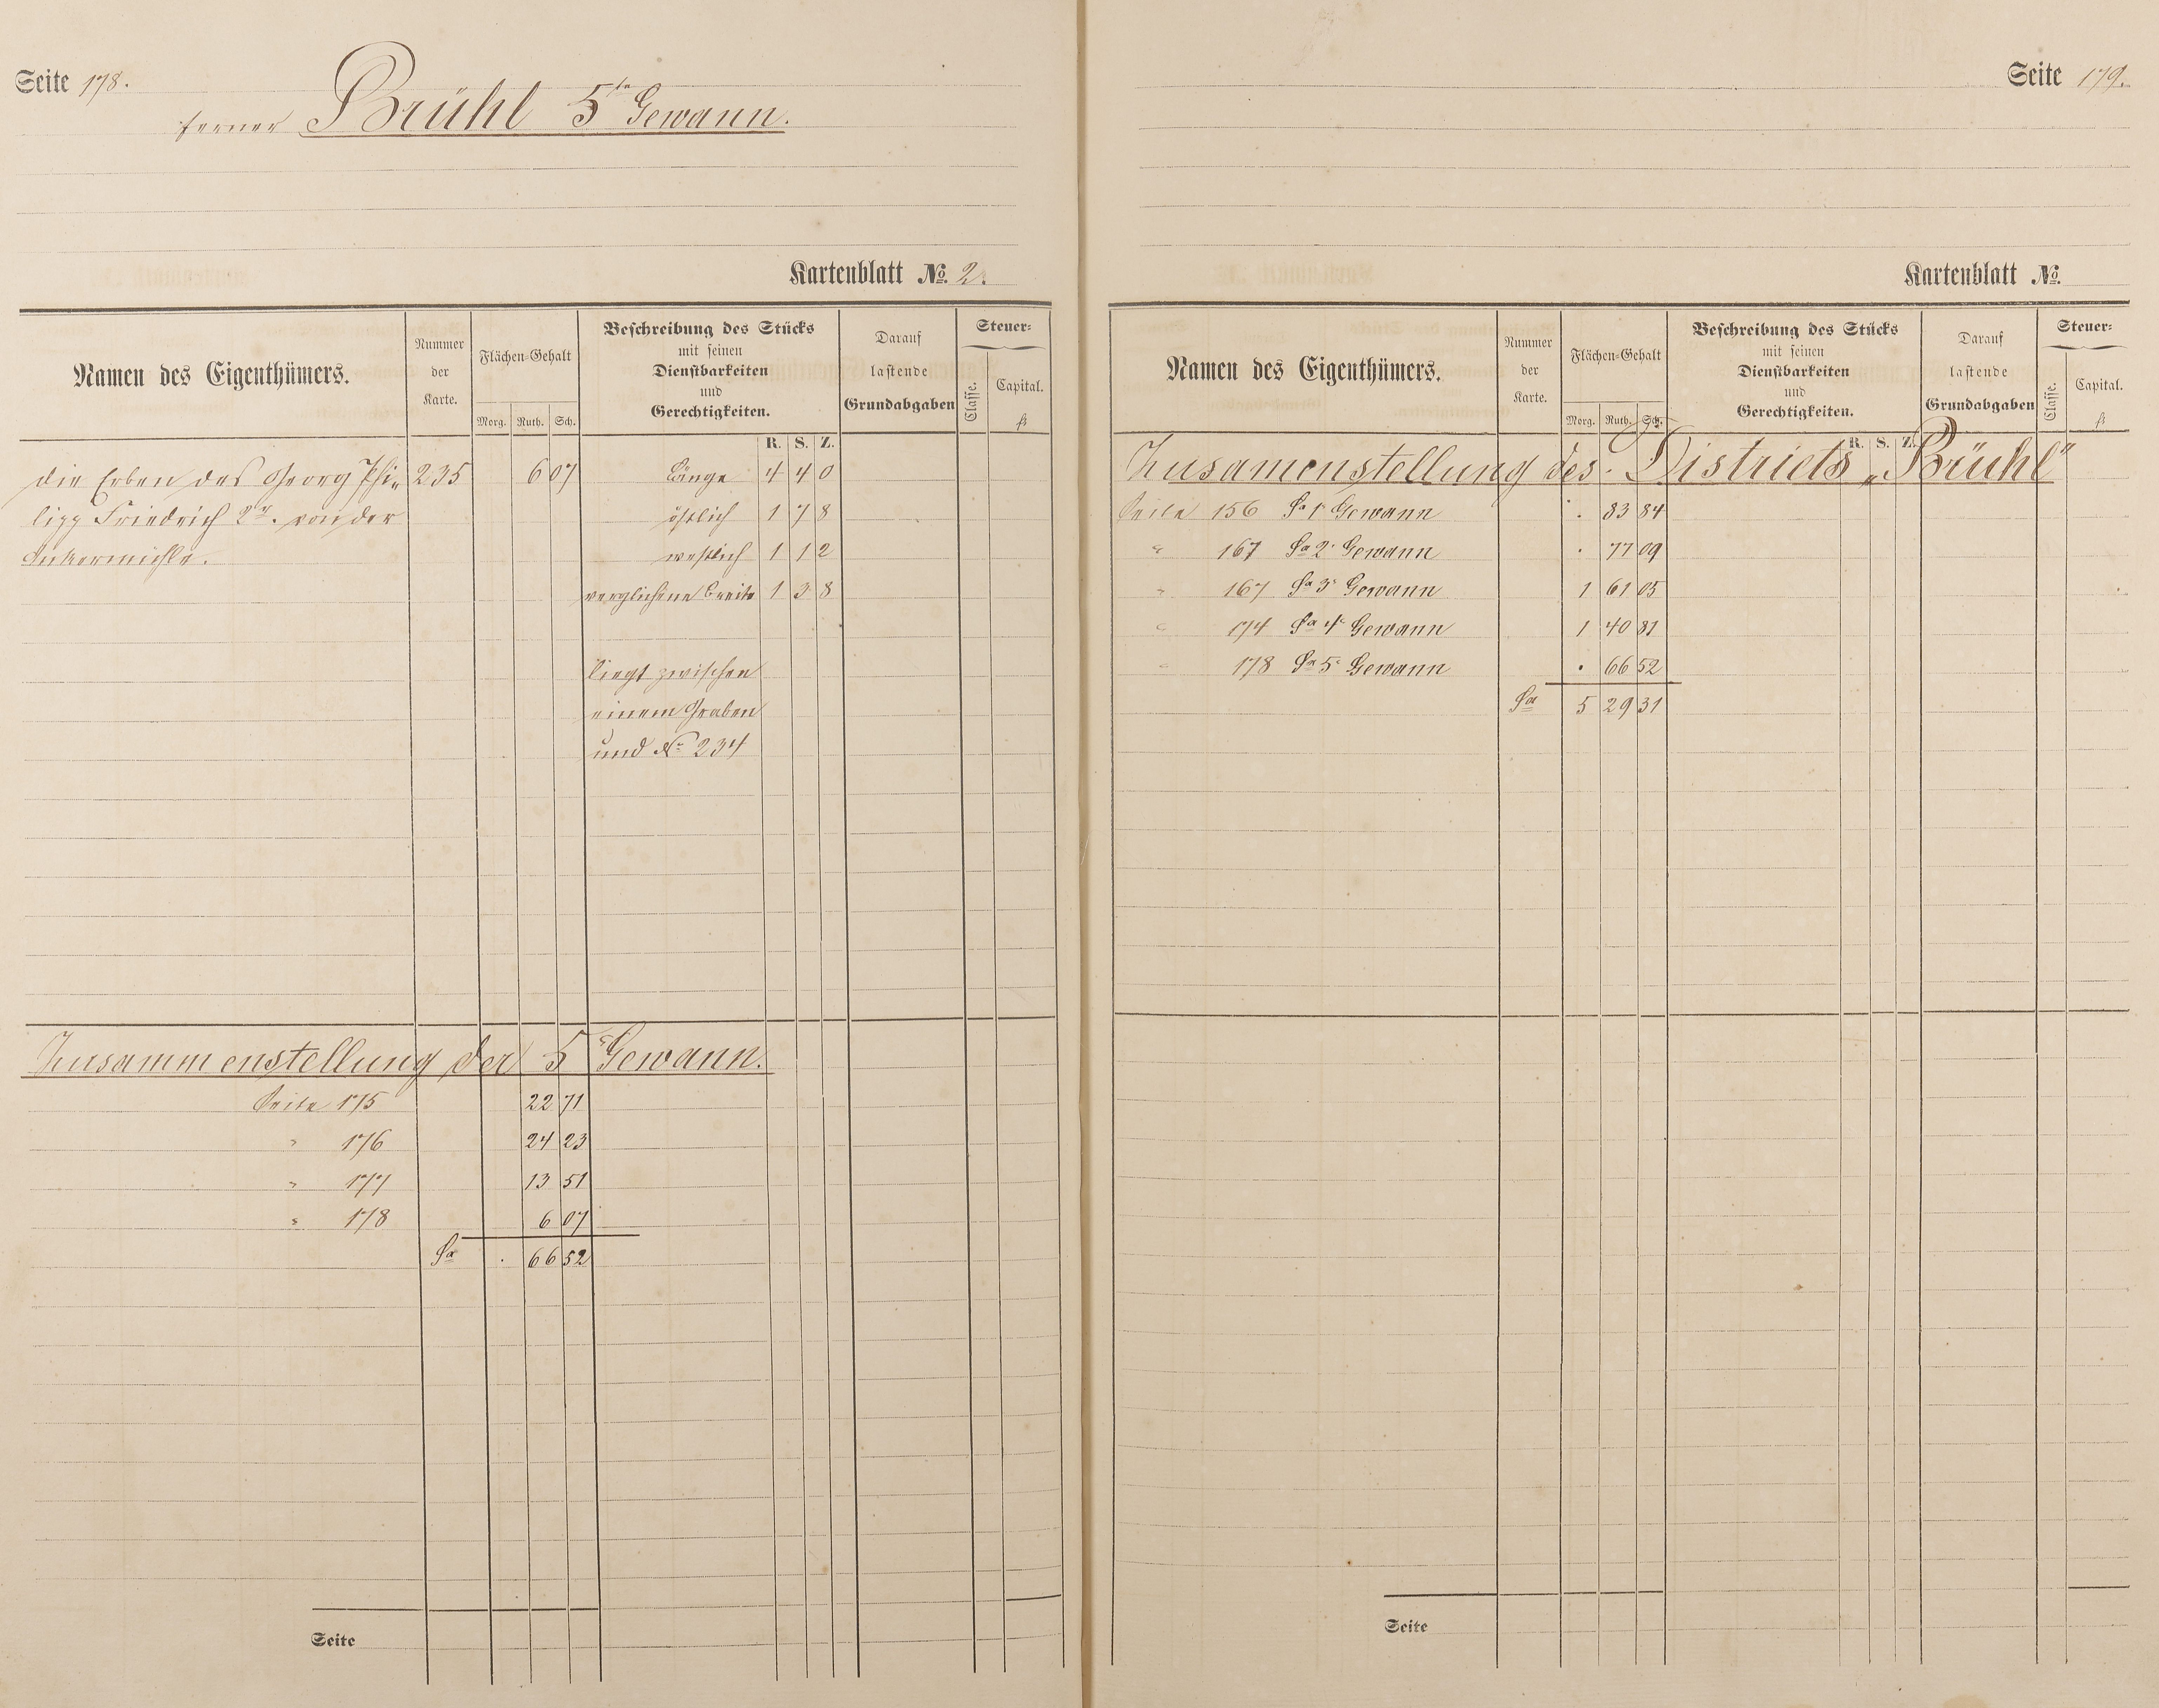 Seite 178.
ferner Brühl 5te Gewann.
Kartenblatt No. 2.
Namen des Eigenthümers. Nummer der Karte. Flächen-Gehalt Morg. Ruth. Sch. Beschreibung des Stücks mit seinen Dienstbarkeiten und Gerechtigkeiten. R. S. Z. Darauf lastende Grundabgaben Steuer: Classe. Capital. fl
die Erben des Georg Phi- 235 6 07 Länge 4 4 0
lipp Friedrich 2r. von der östlich 1 7 8
Ankermühle. westlich 1 1 2
verglichene Breite 1 3 8
liegt zwischen
einem Graben
und No 234
Zusammenstellung der 5r Gewann.
Seite 175 22 71
" 176 24 23
" 177 13 51
" 178 6 07
Sa . 66 52
Seite
Seite 179.
Kartenblatt No.
Namen des Eigenthümers. Nummer der Karte. Flächen-Gehalt Morg. Ruth. Sch. Beschreibung des Stücks mit seinen Dienstbarkeiten und Gerechtigkeiten. R. S. Z. Darauf lastende Grundabgaben Steuer: Classe. Capital. fl
Zusamenstellung des Districts „Brühl"
Seite 156 Sa 1r Gewann . 83 84
" 167 Sa 2r Gewann . 77 09
" 167 Sa 3r Gewann 1 61 05
" 174 Sa 4r Gewann 1 40 81
" 178 Sa 5r Gewann . 66 52
Sa 5 29 31
Seite